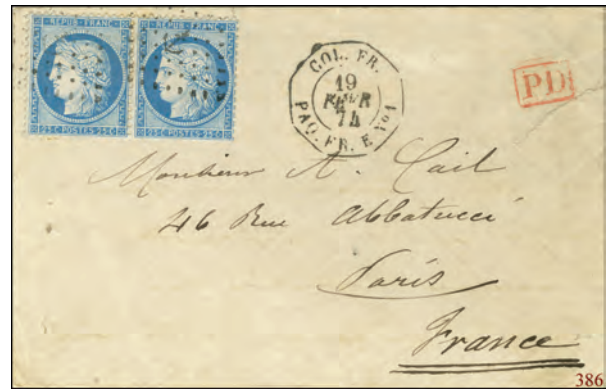 REPUB. FRANC.
REPUB. FRANC.
25 C POSTES 25 C
25 C POSTES 25 C
COL. FR.
19
FEVR
74
PAQ. FR. E No1
PD
Monsieur A. Cail
46 Rue Abbatucci
Paris
France
386